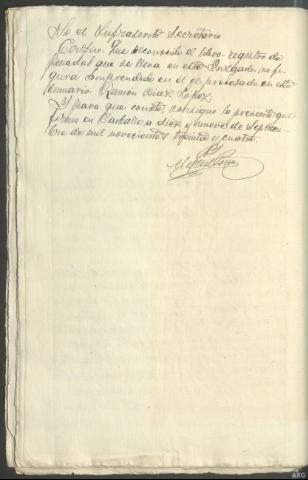 Yo el Infrascrito Secretario
Certifico: Que reconocido el libro-registro de
penados que se lleva en este Juzgado, no fi
gura comprendido en él el procesado en este
sumario Ramón Díaz López.
Y para que conste, consigno la presente que
firmo en Carballo, a diez y nueve de Septiem
bre de mil novecientos treinta y cuatro.
ARG